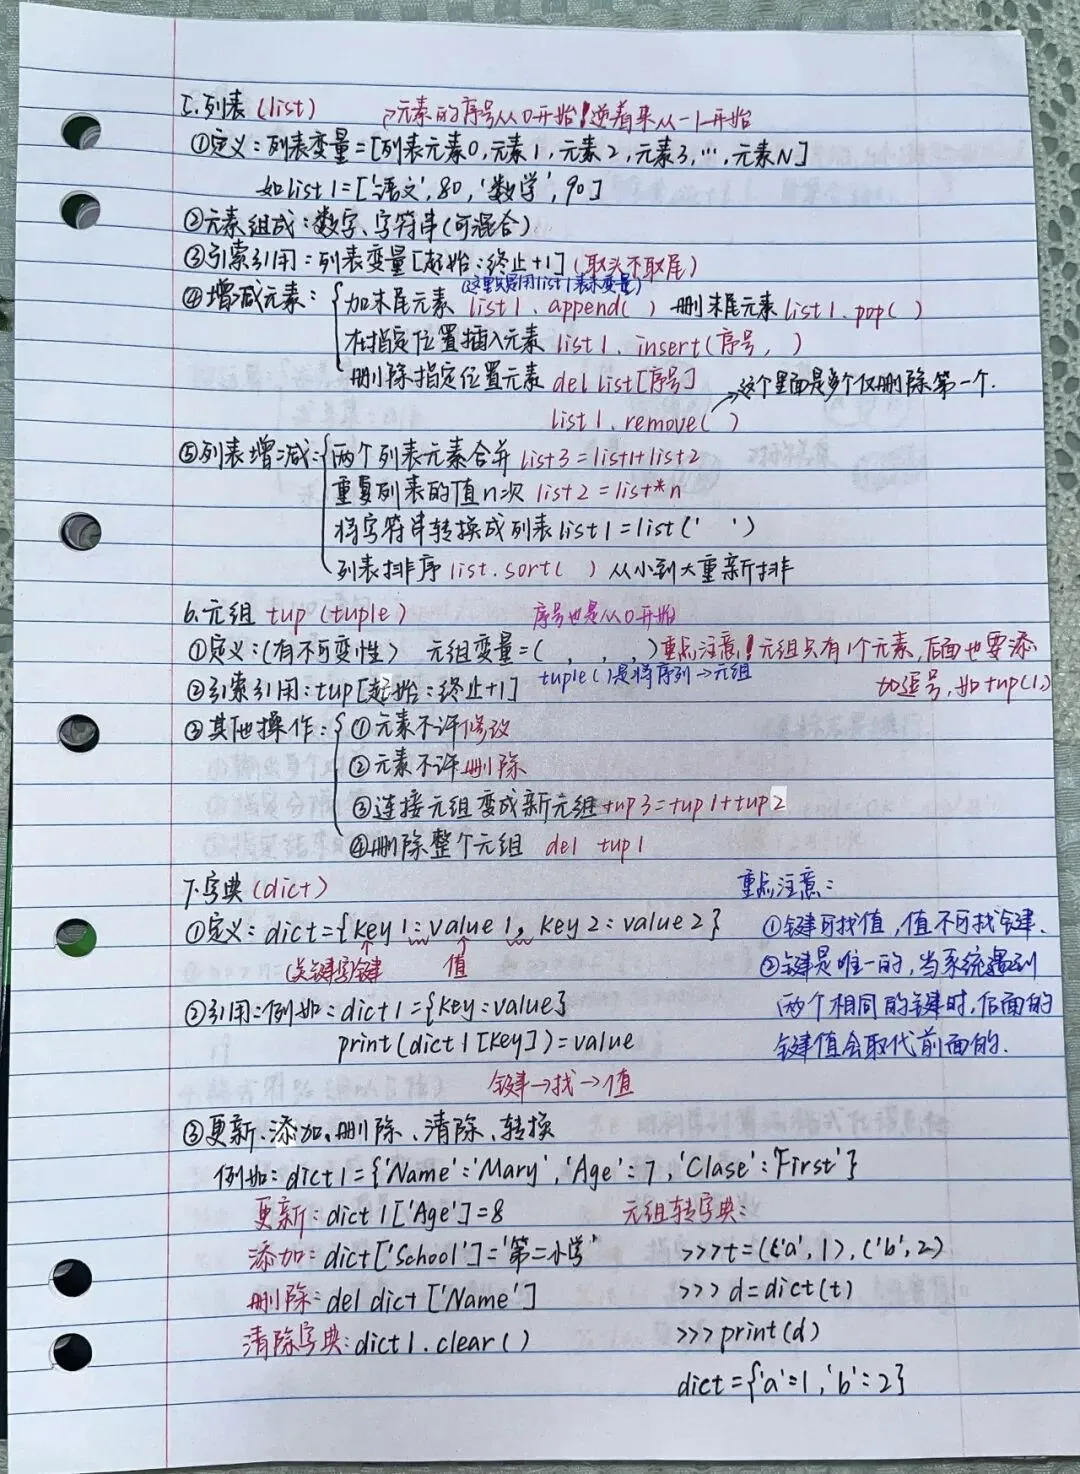 5.列表(list) →元素的序号从0开始!逆着来从-1开始
①定义:列表变量=[列表元素0,元素1,元素2,元素3,…,元素N]
如list1=['语文',80,'数学',90]
②元素组成:数字、字符串(可混合)
③引索引用:列表变量[起始:终止+1](取头不取尾)
(这里只是用list1表示变量)
④增减元素:{加末尾元素 list1.append( ) 删末尾元素list1.pop( )
在指定位置插入元素 list1.insert(序号, )
删除指定位置元素 del list[序号]
list1.remove( ) →这个里面是多个仅删除第一个.
⑤列表增减:{两个列表元素合并 list3=list1+list2
重复列表的值n次 list2=list*n
将字符串转换成列表list1=list(' ')
列表排序 list.sort( ) 从小到大重新排
6.元组 tup(tuple) 序号也是从0开始
①定义:(有不可变性) 元组变量=( , , , )重点注意!元组只有1个元素,后面也要添
加逗号,如tup(1,)
②引索引用:tup[起始:终止+1] tuple()是将序列→元组
③其他操作:{①元素不许修改
②元素不许删除
③连接元组变成新元组tup3=tup1+tup2
④删除整个元组 del tup1
7.字典(dict)
①定义:dict={key1:value1, key2:value2}
(关键字)键 值
②引用:例如:dict1={key:value}
print(dict1[key])=value
键→找→值
重点注意:
①键可找值,值不可找键.
②键是唯一的,当系统遇到
两个相同的键时,后面的
键值会取代前面的.
③更新、添加、删除、清除、转换
例如:dict1={'Name':'Mary','Age':7,'Clase':'First'}
更新:dict1['Age']=8
添加:dict['School']="第二小学"
删除:del dict['Name']
清除字典:dict1.clear()
元组转字典:
>>>t=(('a',1),('b',2)
>>>d=dict(t)
>>>print(d)
dict={'a'=1,'b':2}